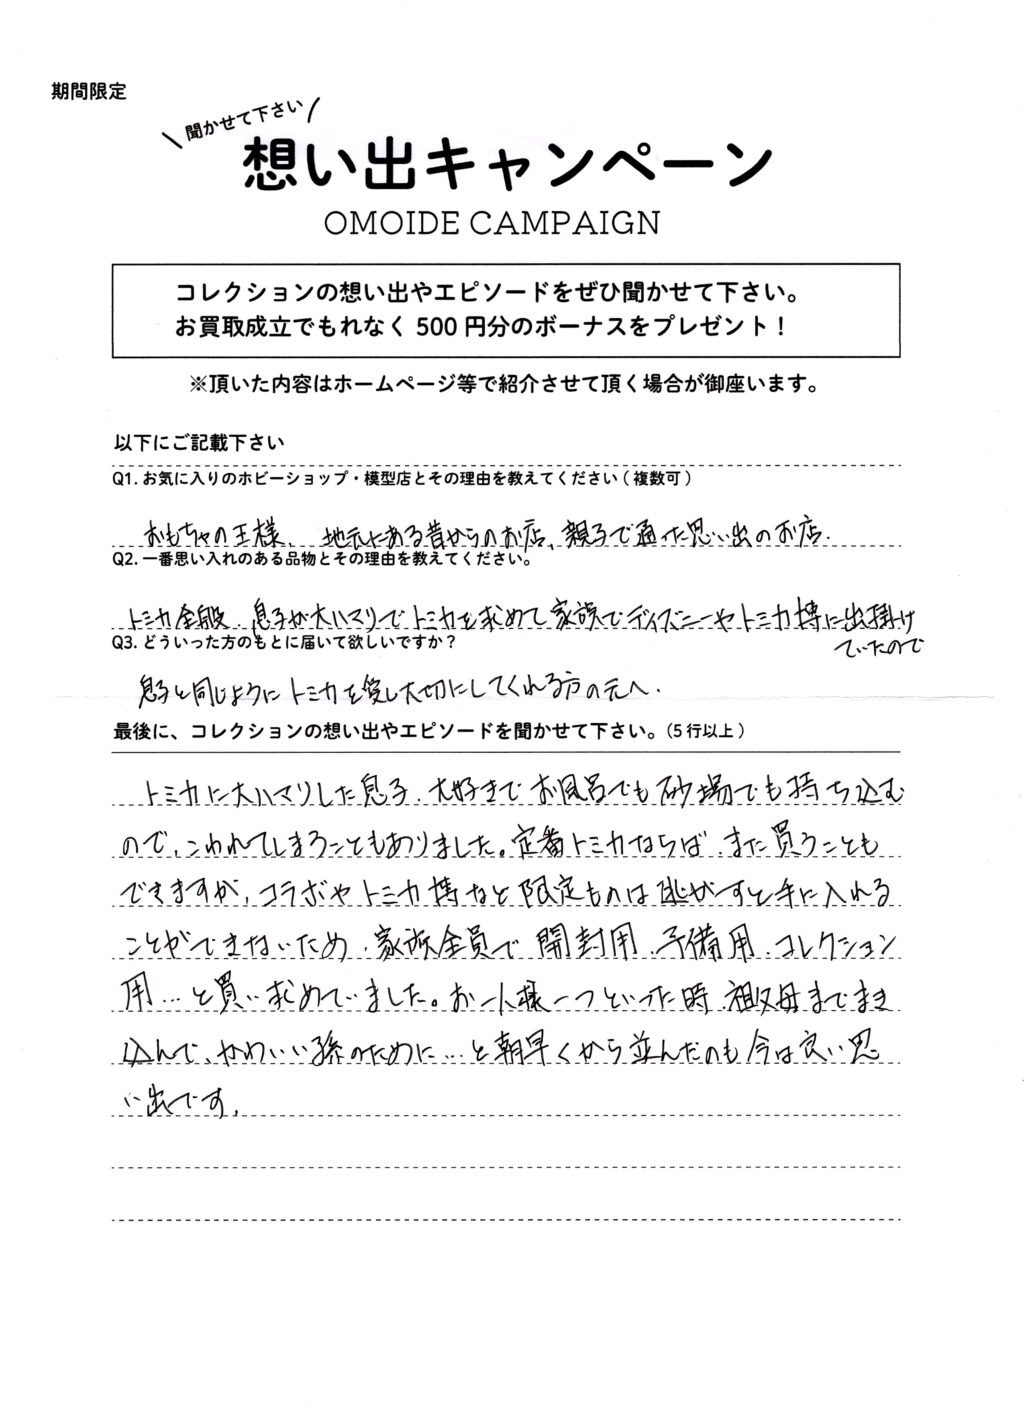 期間限定
聞かせて下さい
想い出キャンペーン
OMOIDE CAMPAIGN
コレクションの想い出やエピソードをぜひ聞かせて下さい。
お買取成立でもれなく 500 円分のボーナスをプレゼント！
※頂いた内容はホームページ等で紹介させて頂く場合が御座います。
以下にご記載下さい
Q1. お気に入りのホビーショップ・模型店とその理由を教えてください ( 複数可 )
おもちゃの王様、地元にある昔からのお店、親子で通った思い出のお店.
Q2. 一番思い入れのある品物とその理由を教えてください。
トミカ全般、息子が大ハマリでトミカを求めて家族でディズニーやトミカ博に出掛け
ていたので
Q3. どういった方のもとに届いて欲しいですか？
息子と同じようにトミカを愛し大切にしてくれる方の元へ.
最後に、コレクションの想い出やエピソードを聞かせて下さい。(5 行以上 )
トミカに大ハマリした息子、大好きでお風呂でも砂場でも持ち込む
ので、こわれてしまうこともありました。定番トミカならば、また買うことも
できますが、コラボやトミカ博など限定ものは逃がすと手に入れる
ことができないため、家族全員で開封用、予備用、コレクション
用…と買い求めていました。お一人様一つといった時、祖父母までまき
込んで、かわいい孫のために…と朝早くから並んだのも今は良い思
い出です.